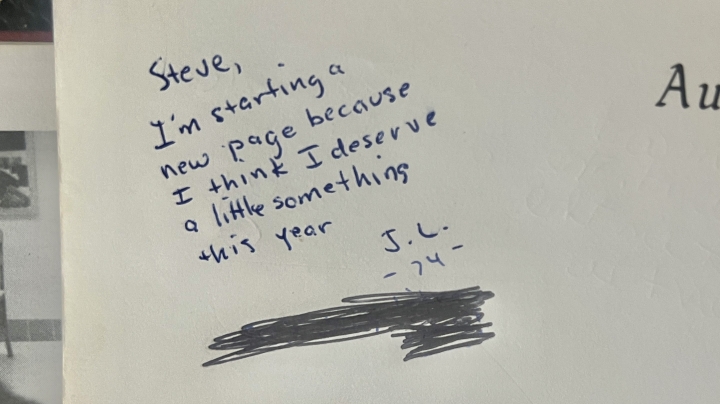 Steve,
I'm starting a
new page because
I think I deserve
a little something
this year
J.L.
- 74 -
Au